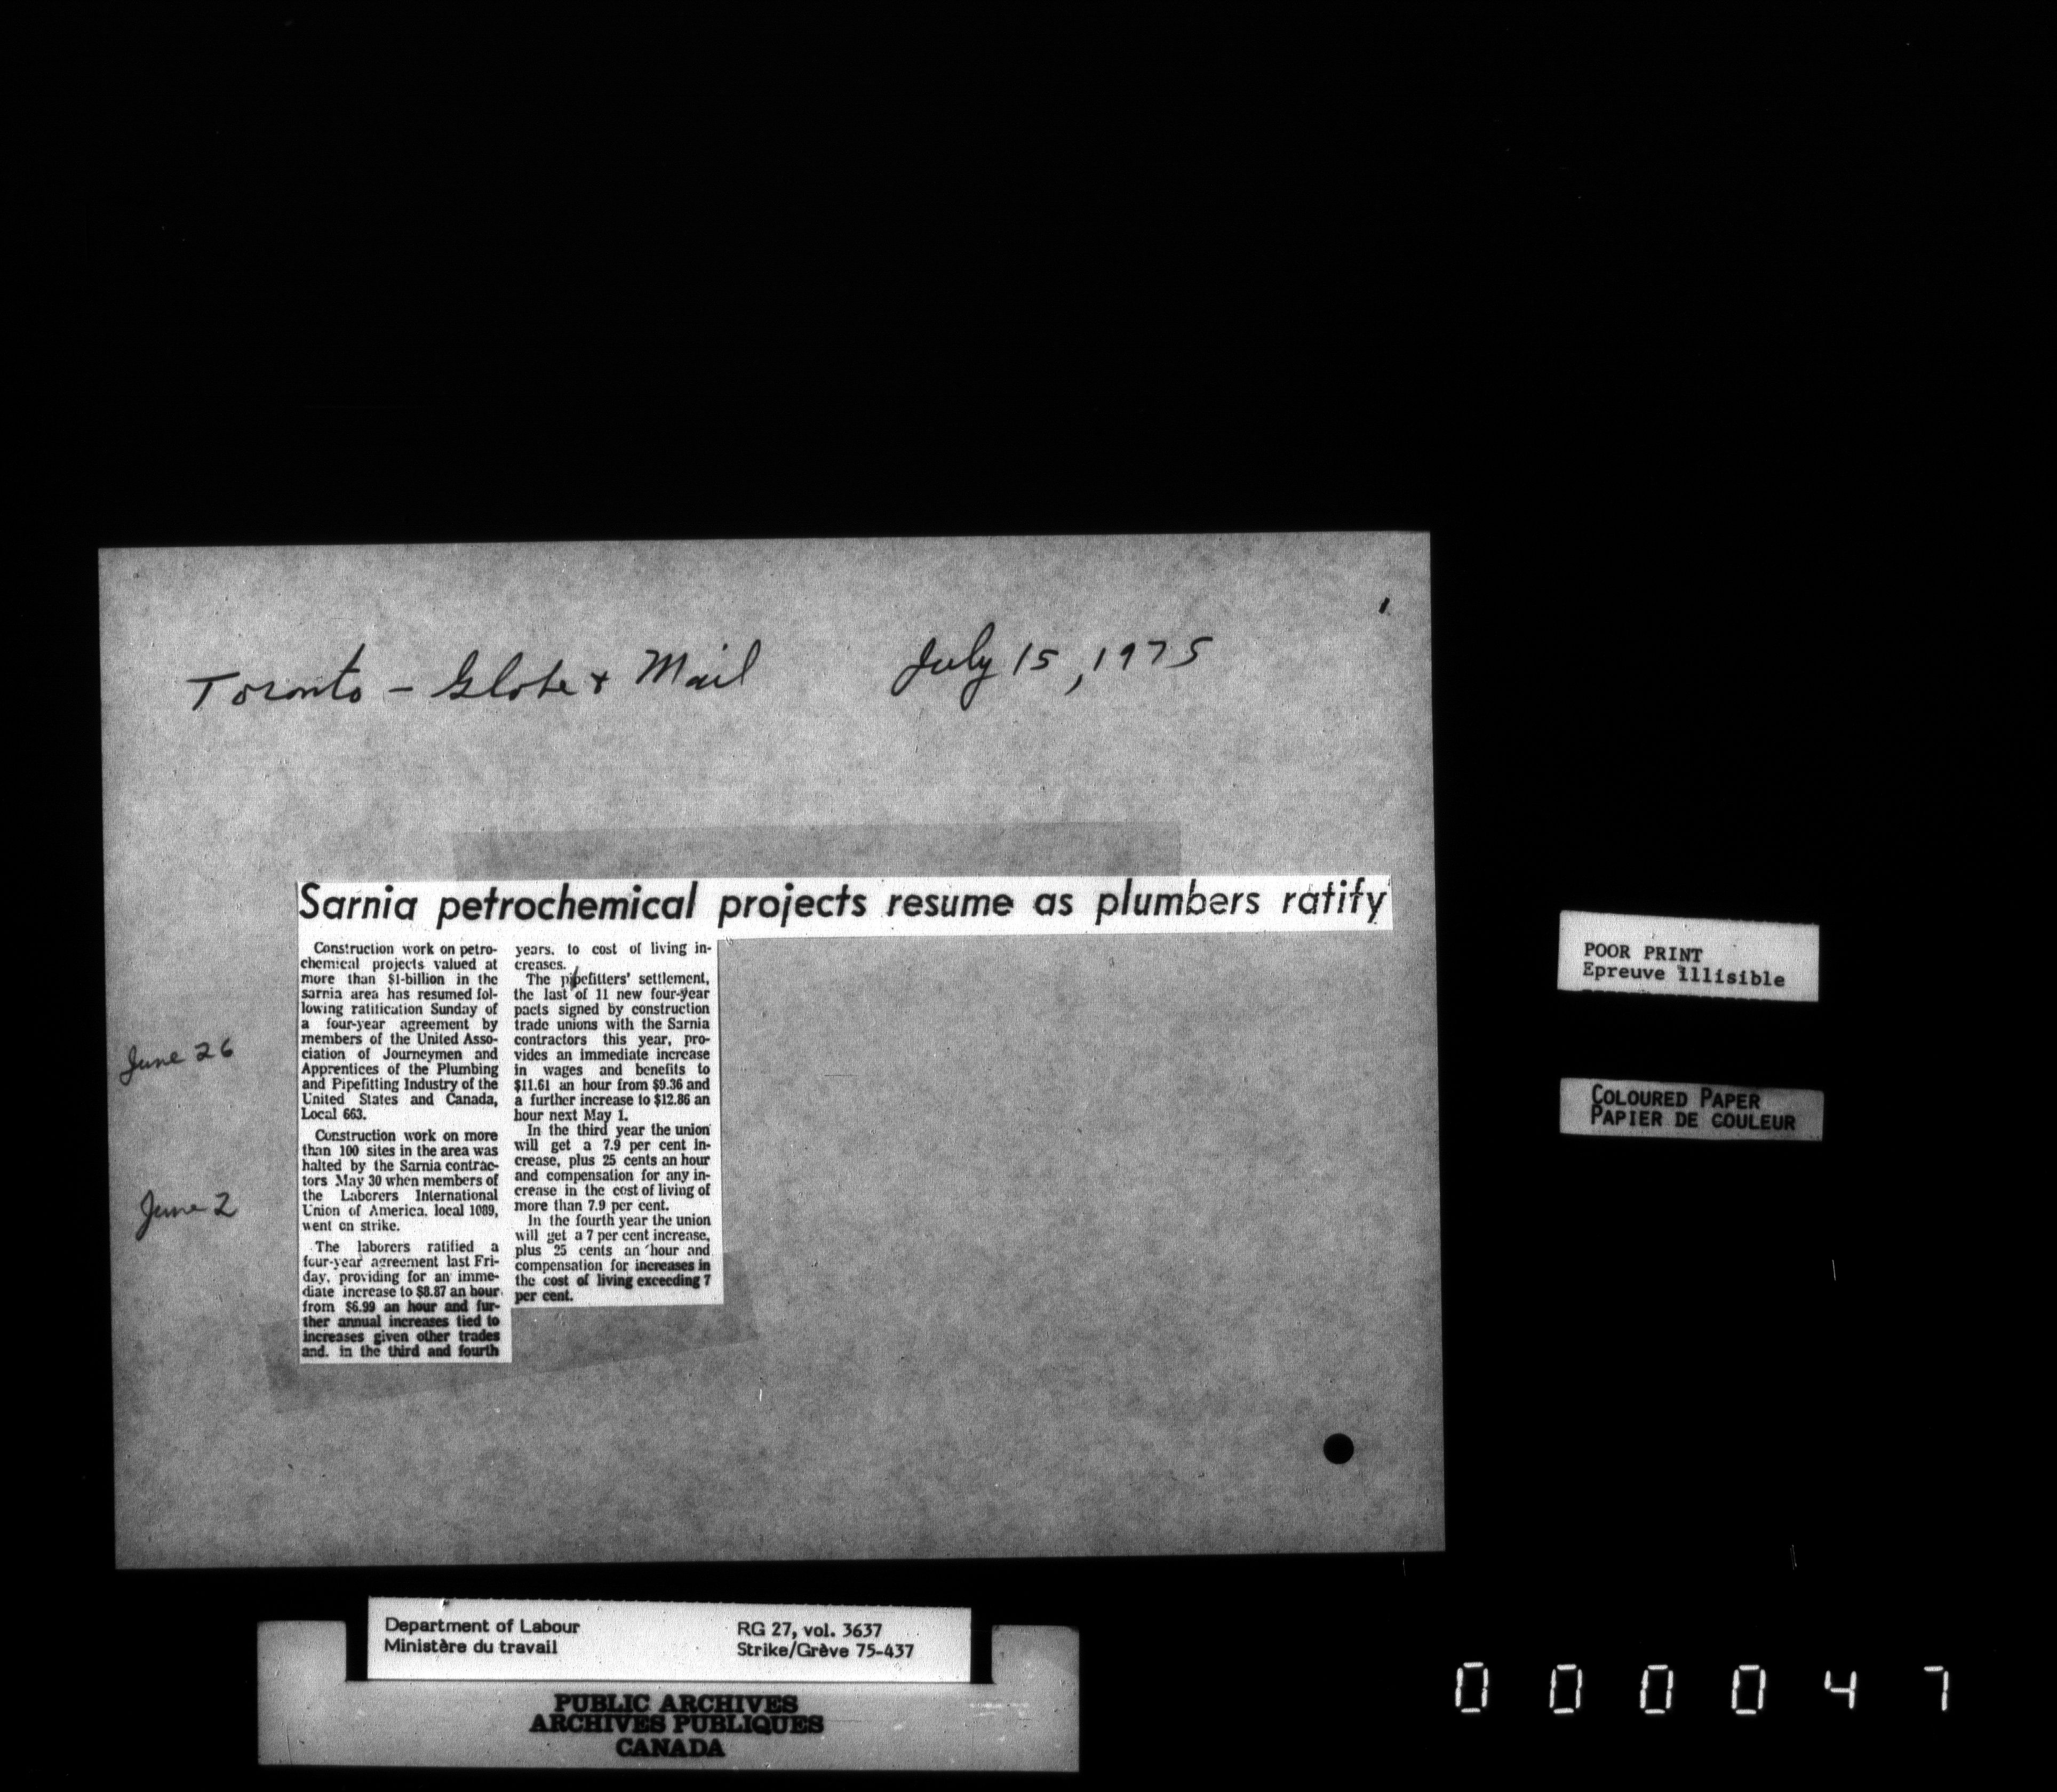 Toronto - Globe + Mail July 15, 1975
Sarnia petrochemical projects resume as plumbers ratify
Construction work on petro-
chemical projects valued at
more than $1-billion in the
sarnia area has resumed fol-
lowing ratification Sunday of
a four-year agreement by
members of the United Asso-
ciation of Journeymen and
Apprentices of the Plumbing
and Pipefitting Industry of the
United States and Canada,
Local 663.
Construction work on more
than 100 sites in the area was
halted by the Sarnia contrac-
tors May 30 when members of
the Laborers International
Union of America, local 1089,
went on strike.
The laborers ratified a
four-year agreement last Fri-
day, providing for an imme-
diate increase to $8.87 an hour
from $6.99 an hour and fur-
ther annual increases tied to
increases given other trades
and, in the third and fourth
years, to cost of living in-
creases.
The pipefitters' settlement,
the last of 11 new four-year
pacts signed by construction
trade unions with the Sarnia
contractors this year, pro-
vides an immediate increase
in wages and benefits to
$11.61 an hour from $9.36 and
a further increase to $12.86 an
hour next May 1.
In the third year the union
will get a 7.9 per cent in-
crease, plus 25 cents an hour
and compensation for any in-
crease in the cost of living of
more than 7.9 per cent.
In the fourth year the union
will get a 7 per cent increase,
plus 25 cents an hour and
compensation for increases in
the cost of living exceeding 7
per cent.
June 26
June 2
POOR PRINT
Epreuve illisible
COLOURED PAPER
PAPIER DE COULEUR
Department of Labour
Ministère du travail
RG 27, vol. 3637
Strike/Grève 75-437
PUBLIC ARCHIVES
ARCHIVES PUBLIQUES
CANADA
000047